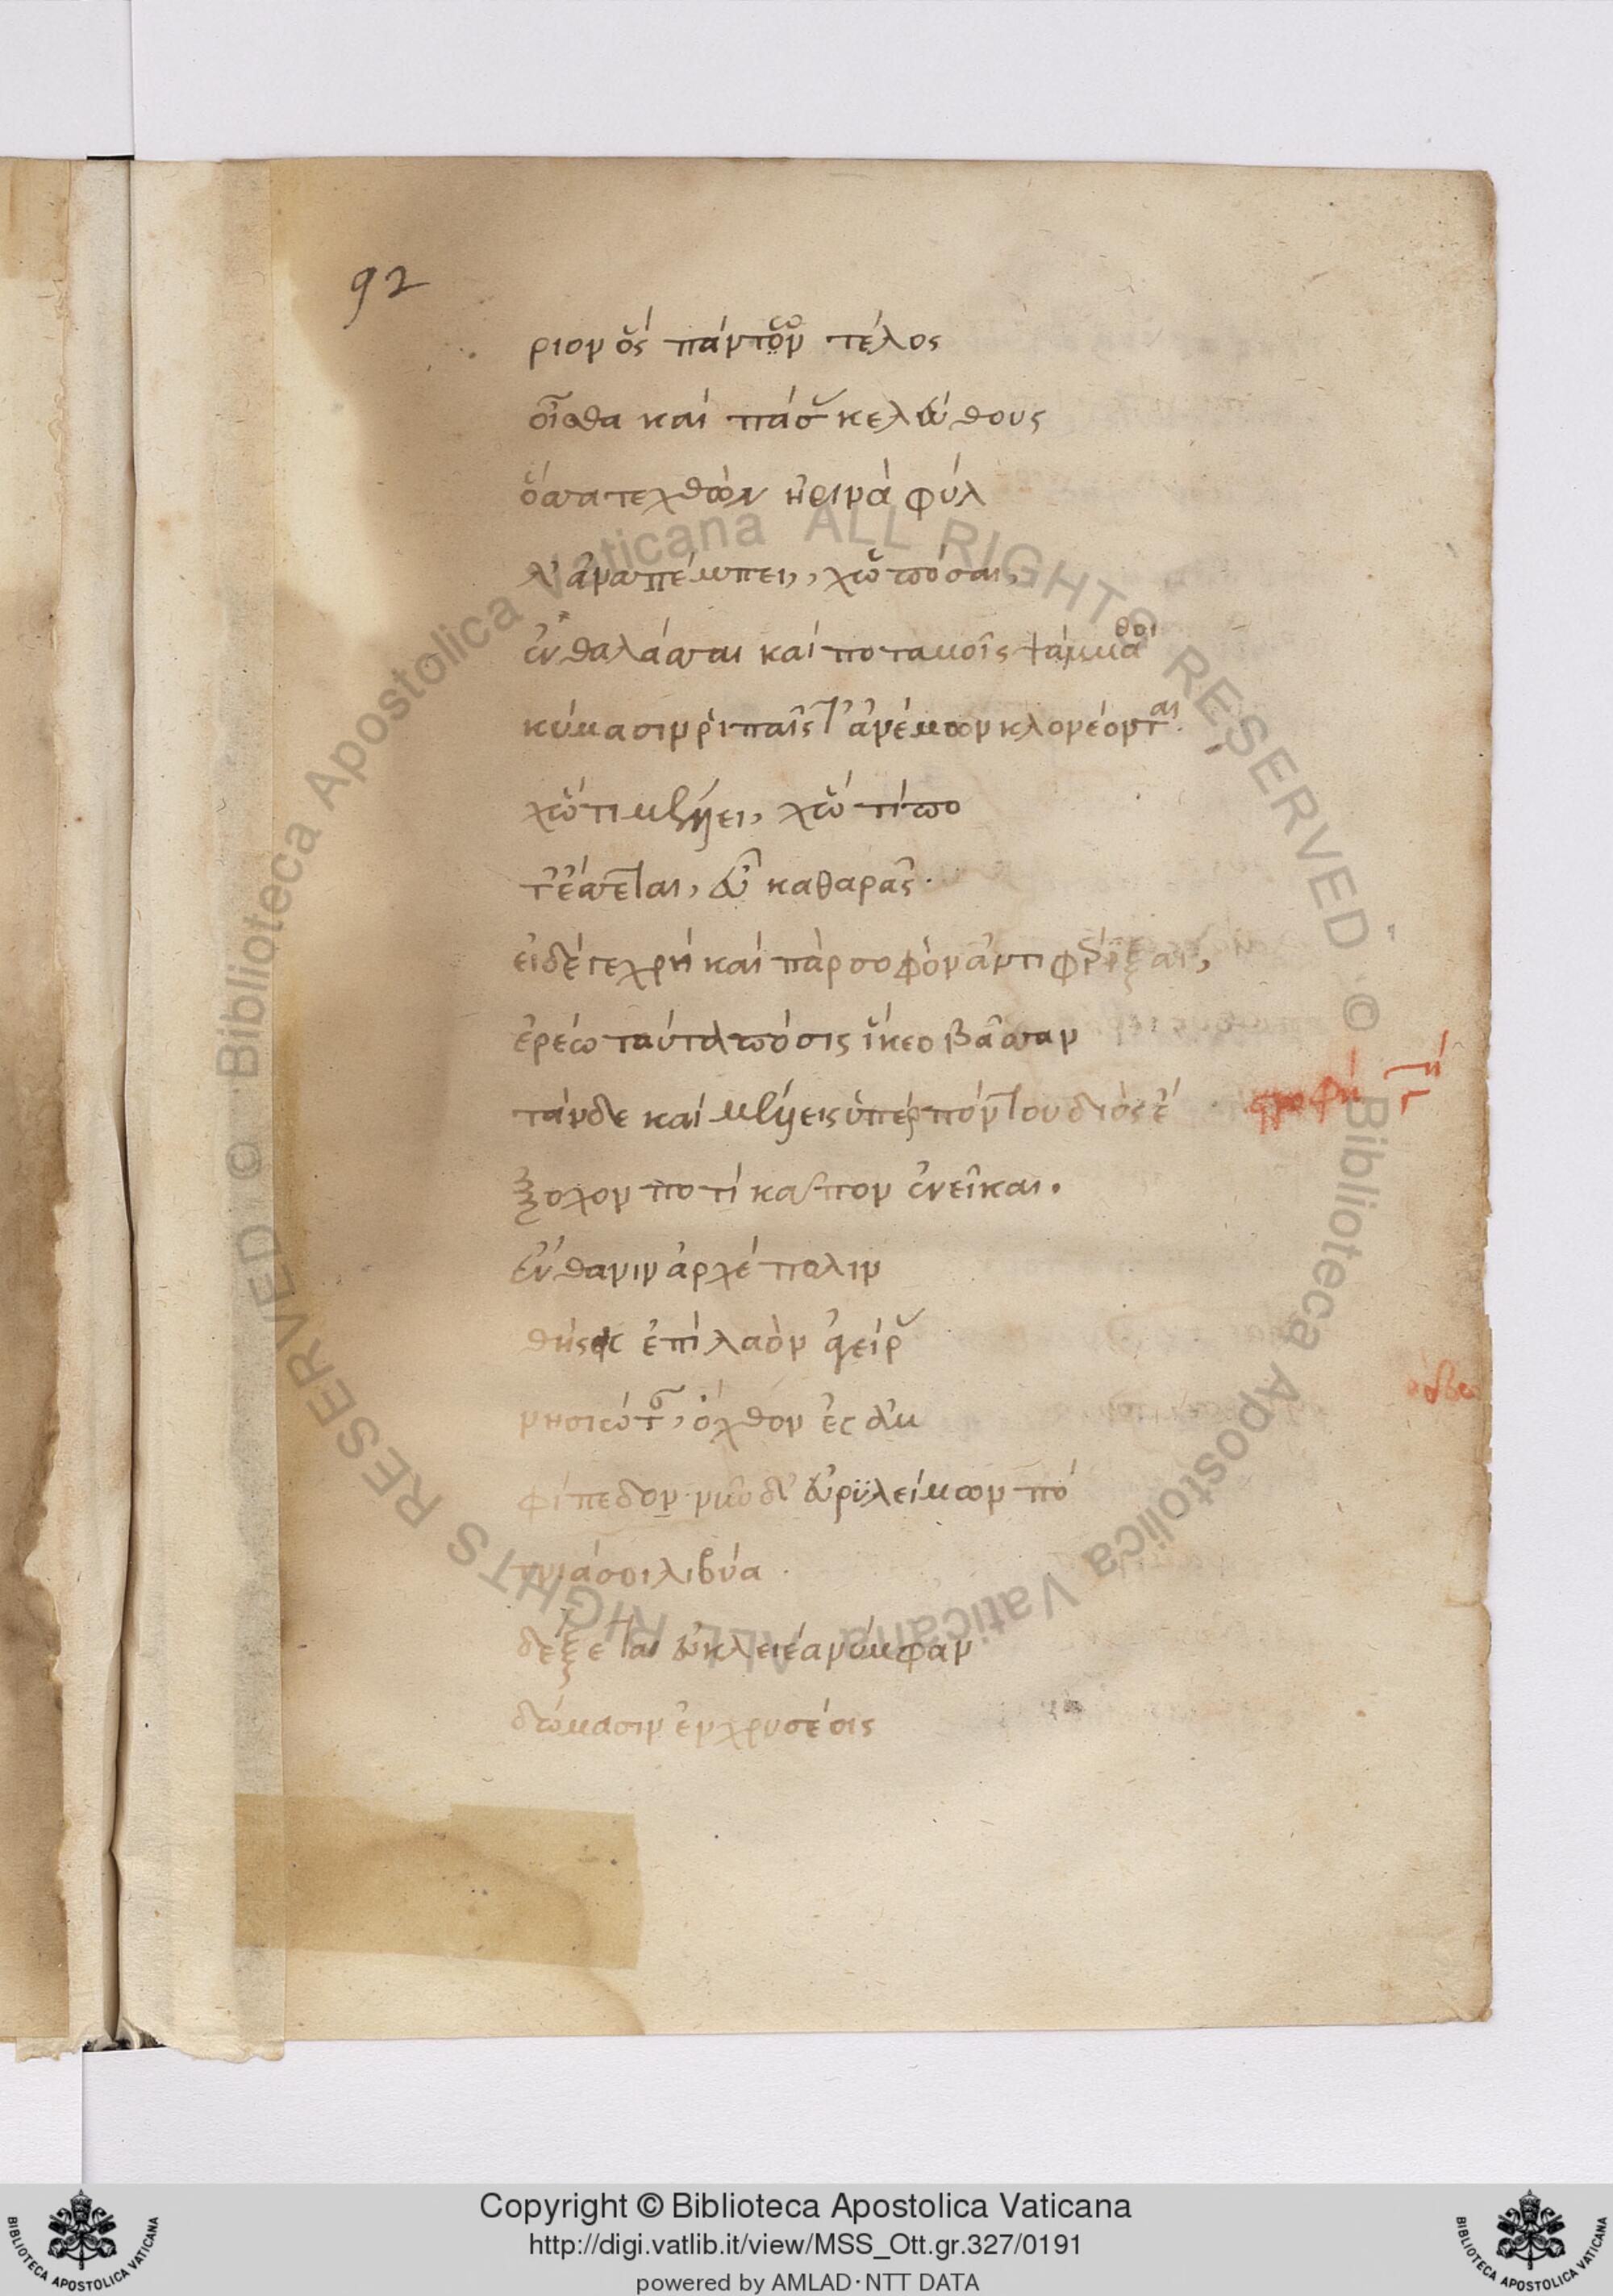 92
ριον ὃς πάντων τέλος
οἶσθα καὶ πάσας κελεύθους
ὅσσα τε χθὼν ἠρινὰ φύλ
λ' ἀναπέμπει, χὠπόσαι,
ἐν θαλάσσαι καὶ ποταμοῖς ψάμμαθοι
κύμασιν ῥιπαῖς τ' ἀνέμων κλονέονται.
χὤτι μέλλει, χὠπό
τ' ἔσσεται, εὖ καθορᾷς.
εἰ δέ γε χρὴ καὶ πὰρ σοφὸν ἀντιφερίξαι,
ἐρέω ταύτα πόσις ἵκεο βᾶσσαν
τάνδε καὶ μέλλεις ὑπὲρ πόντου διὸς ἔ
ξοχον ποτὶ κᾶπον ἐνεῖκαι.
ἔνθα νιν ἀρχέπολιν
θήσεις ἐπὶ λαὸν ἀγείρας
νησιώταν, ὄχθον ἐς ἀμ
φίπεδον· νῦν δ' εὐρυλείμων πό
τνιά σοι λιβύα
δέξεται εὐκλεέα νύμφαν
δώμασιν ἐν χρυσέοις
στροφὴ γ
Copyright © Biblioteca Apostolica Vaticana
http://digi.vatlib.it/view/MSS_Ott.gr.327/0191
powered by AMLAD·NTT DATA
BIBLIOTECA APOSTOLICA VATICANA
BIBLIOTECA APOSTOLICA VATICANA
© Biblioteca Apostolica Vaticana ALL RIGHTS RESERVED © Biblioteca Apostolica Vaticana ALL RIGHTS RESERVED